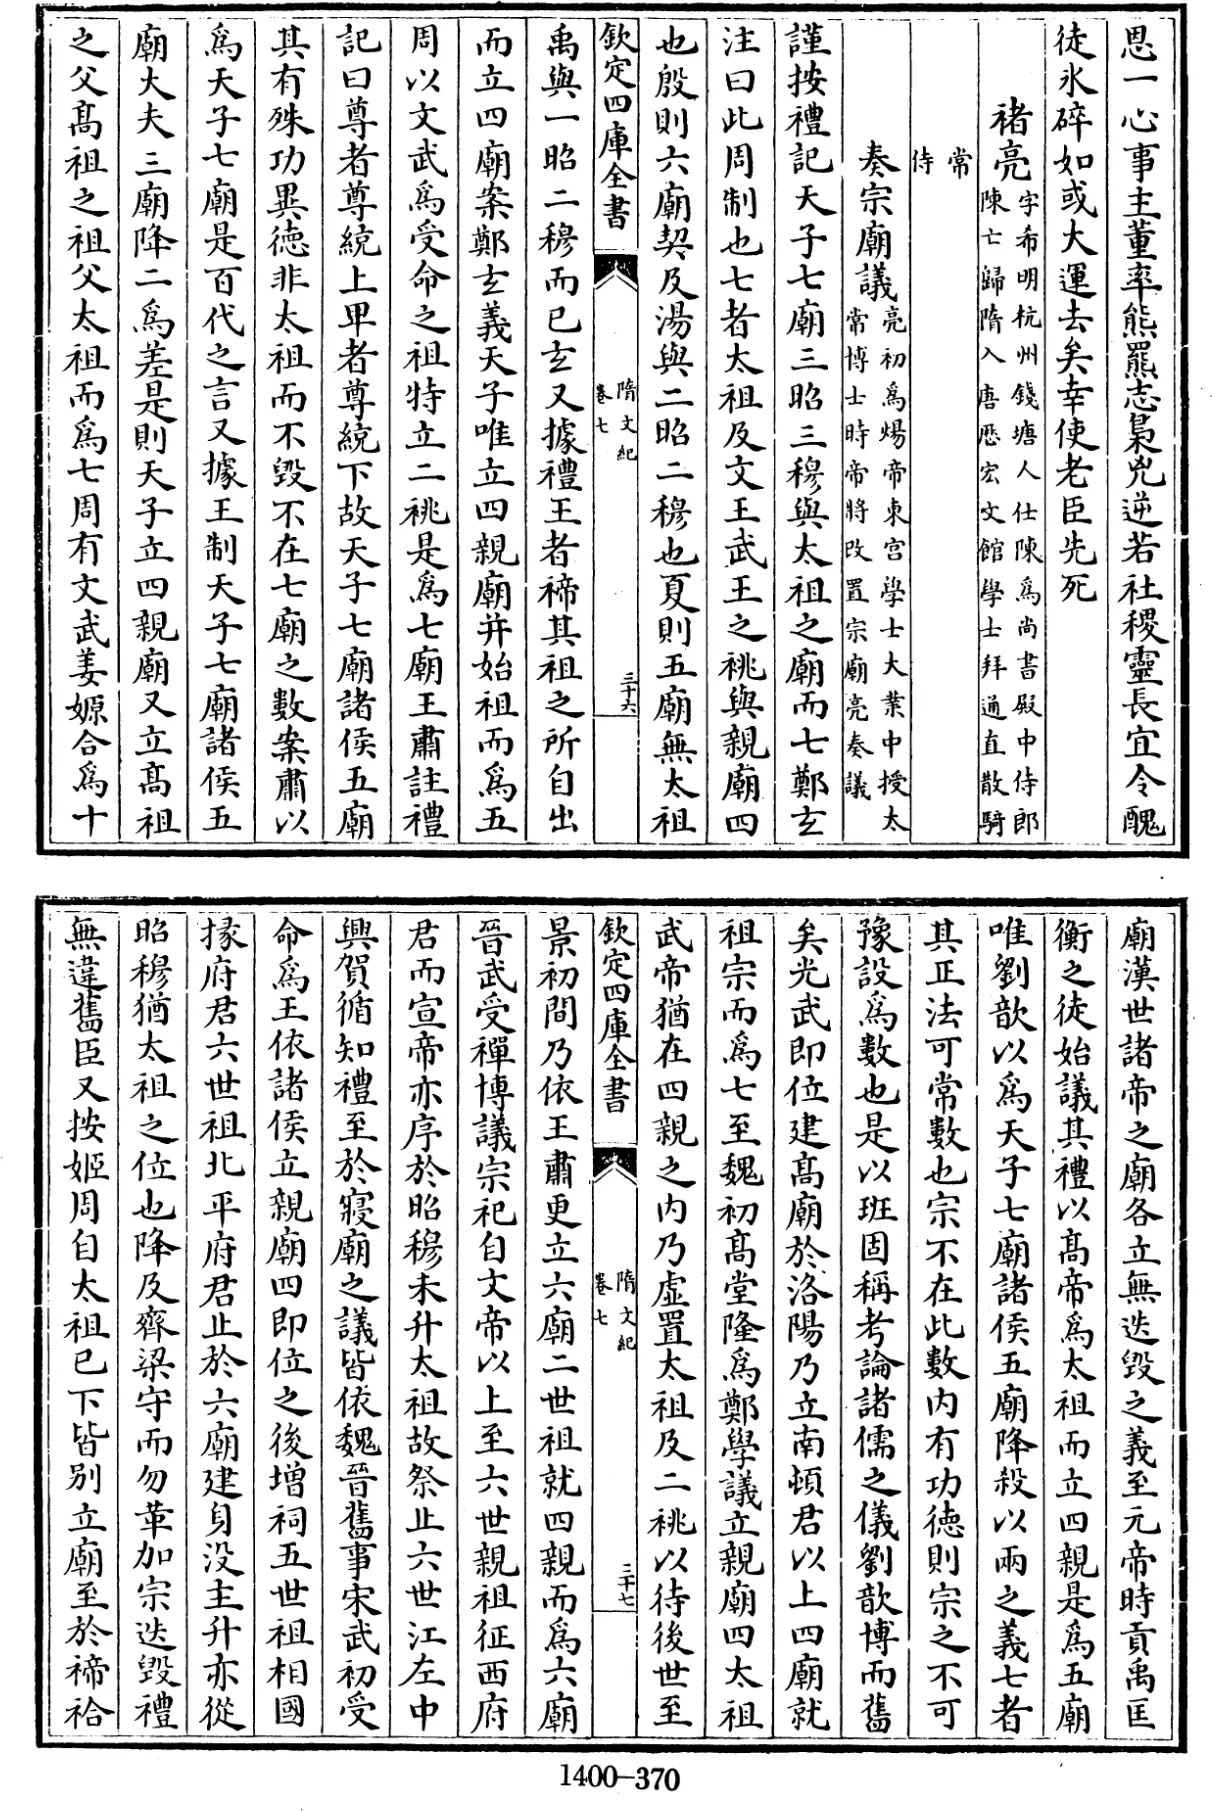 思一心事主董率熊羆志梟兇逆若社稷靈長宜令醜
徒氷碎如或大運去矣幸使老臣先死
褚亮字希明杭州錢塘人仕陳爲尚書殿中侍郎
陳亡歸隋入唐歴宏文館學士拜通直散騎
常
侍
奏宗廟議亮初爲煬帝東宫學士大業中授太
常博士時帝將改置宗廟亮奏議
謹按禮記天子七廟三昭三穆與太祖之廟而七鄭玄
注曰此周制也七者太祖及文王武王之祧與親廟四
也殷則六廟契及湯與二昭二穆也夏則五廟無太祖
欽定四庫全書
隋文紀
卷七
三十六
禹與一昭二穆而已玄又據禮王者禘其祖之所自出
而立四廟案鄭玄義天子唯立四親廟并始祖而爲五
周以文武爲受命之祖特立二祧是爲七廟王肅註禮
記曰尊者尊統上卑者尊統下故天子七廟諸侯五廟
其有殊功異徳非太祖而不毀不在七廟之數案肅以
爲天子七廟是百代之言又據王制天子七廟諸侯五
廟大夫三廟降二爲差是則天子立四親廟又立髙祖
之父髙祖之祖父太祖而爲七周有文武姜嫄合爲十
廟漢世諸帝之廟各立無迭毀之義至元帝時貢禹匡
衡之徒始議其禮以髙帝爲太祖而立四親是爲五廟
唯劉歆以爲天子七廟諸侯五廟降殺以兩之義七者
其正法可常數也宗不在此數内有功徳則宗之不可
豫設爲數也是以班固稱考論諸儒之儀劉歆博而舊
矣光武即位建髙廟於洛陽乃立南頓君以上四廟就
祖宗而爲七至魏初髙堂隆爲鄭學議立親廟四太祖
武帝猶在四親之内乃虚置太祖及二祧以待後世至
欽定四庫全書
隋文紀
卷七
三十七
景初間乃依王肅更立六廟二世祖就四親而爲六廟
晉武受禪博議宗祀自文帝以上至六世親祖征西府
君而宣帝亦序於昭穆未升太祖故祭止六世江左中
興賀循知禮至於寢廟之議皆依魏晉舊事宋武初受
命爲王依諸侯立親廟四即位之後增祠五世祖相國
掾府君六世祖北平府君止於六廟建身没主升亦從
昭穆猶太祖之位也降及齊梁守而勿革加宗迭毀禮
無違舊臣又按姬周自太祖已下皆别立廟至於禘祫
1400-370